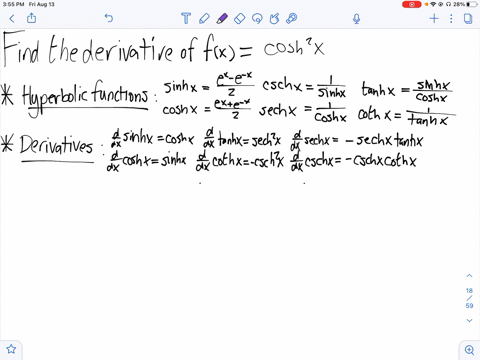 3:55 PM Fri Aug 13 28%
Find the derivative of f(x) = cosh²x
* Hyperbolic functions: sinhx = (eˣ-e⁻ˣ)/2 cschx = 1/sinhx tanhx = sinhx/coshx
coshx = (eˣ+e⁻ˣ)/2 sechx = 1/coshx cothx = 1/tanhx
* Derivatives: d/dx sinhx = coshx d/dx tanhx = sech²x d/dx sechx = - sechx tanhx
d/dx coshx = sinhx d/dx cothx = -csch²x d/dx cschx = -cschx cothx
18
/
59